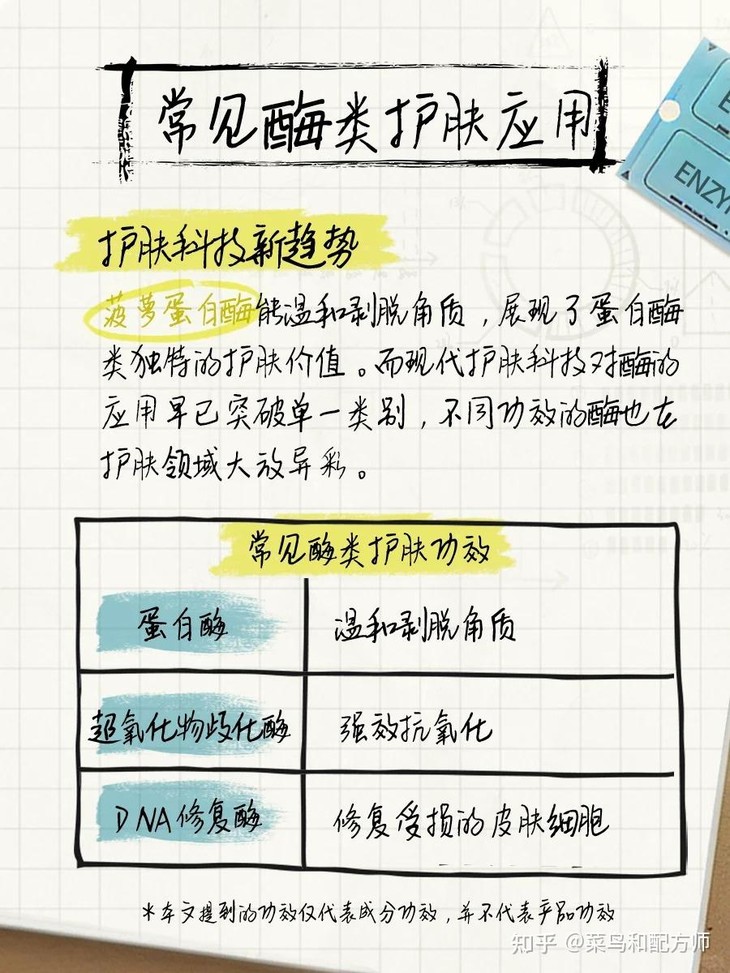 常见酶类护肤应用
ENZY
护肤科技新趋势
菠萝蛋白酶能温和剥脱角质，展现了蛋白酶
类独特的护肤价值。而现代护肤科技对酶的
应用早已突破单一类别，不同功效的酶也在
护肤领域大放异彩。
常见酶类护肤功效
蛋白酶 温和剥脱角质
超氧化物歧化酶 强效抗氧化
DNA修复酶 修复受损的皮肤细胞
*本文提到的功效仅代表成分功效，并不代表产品功效
知乎 @菜鸟和配方师